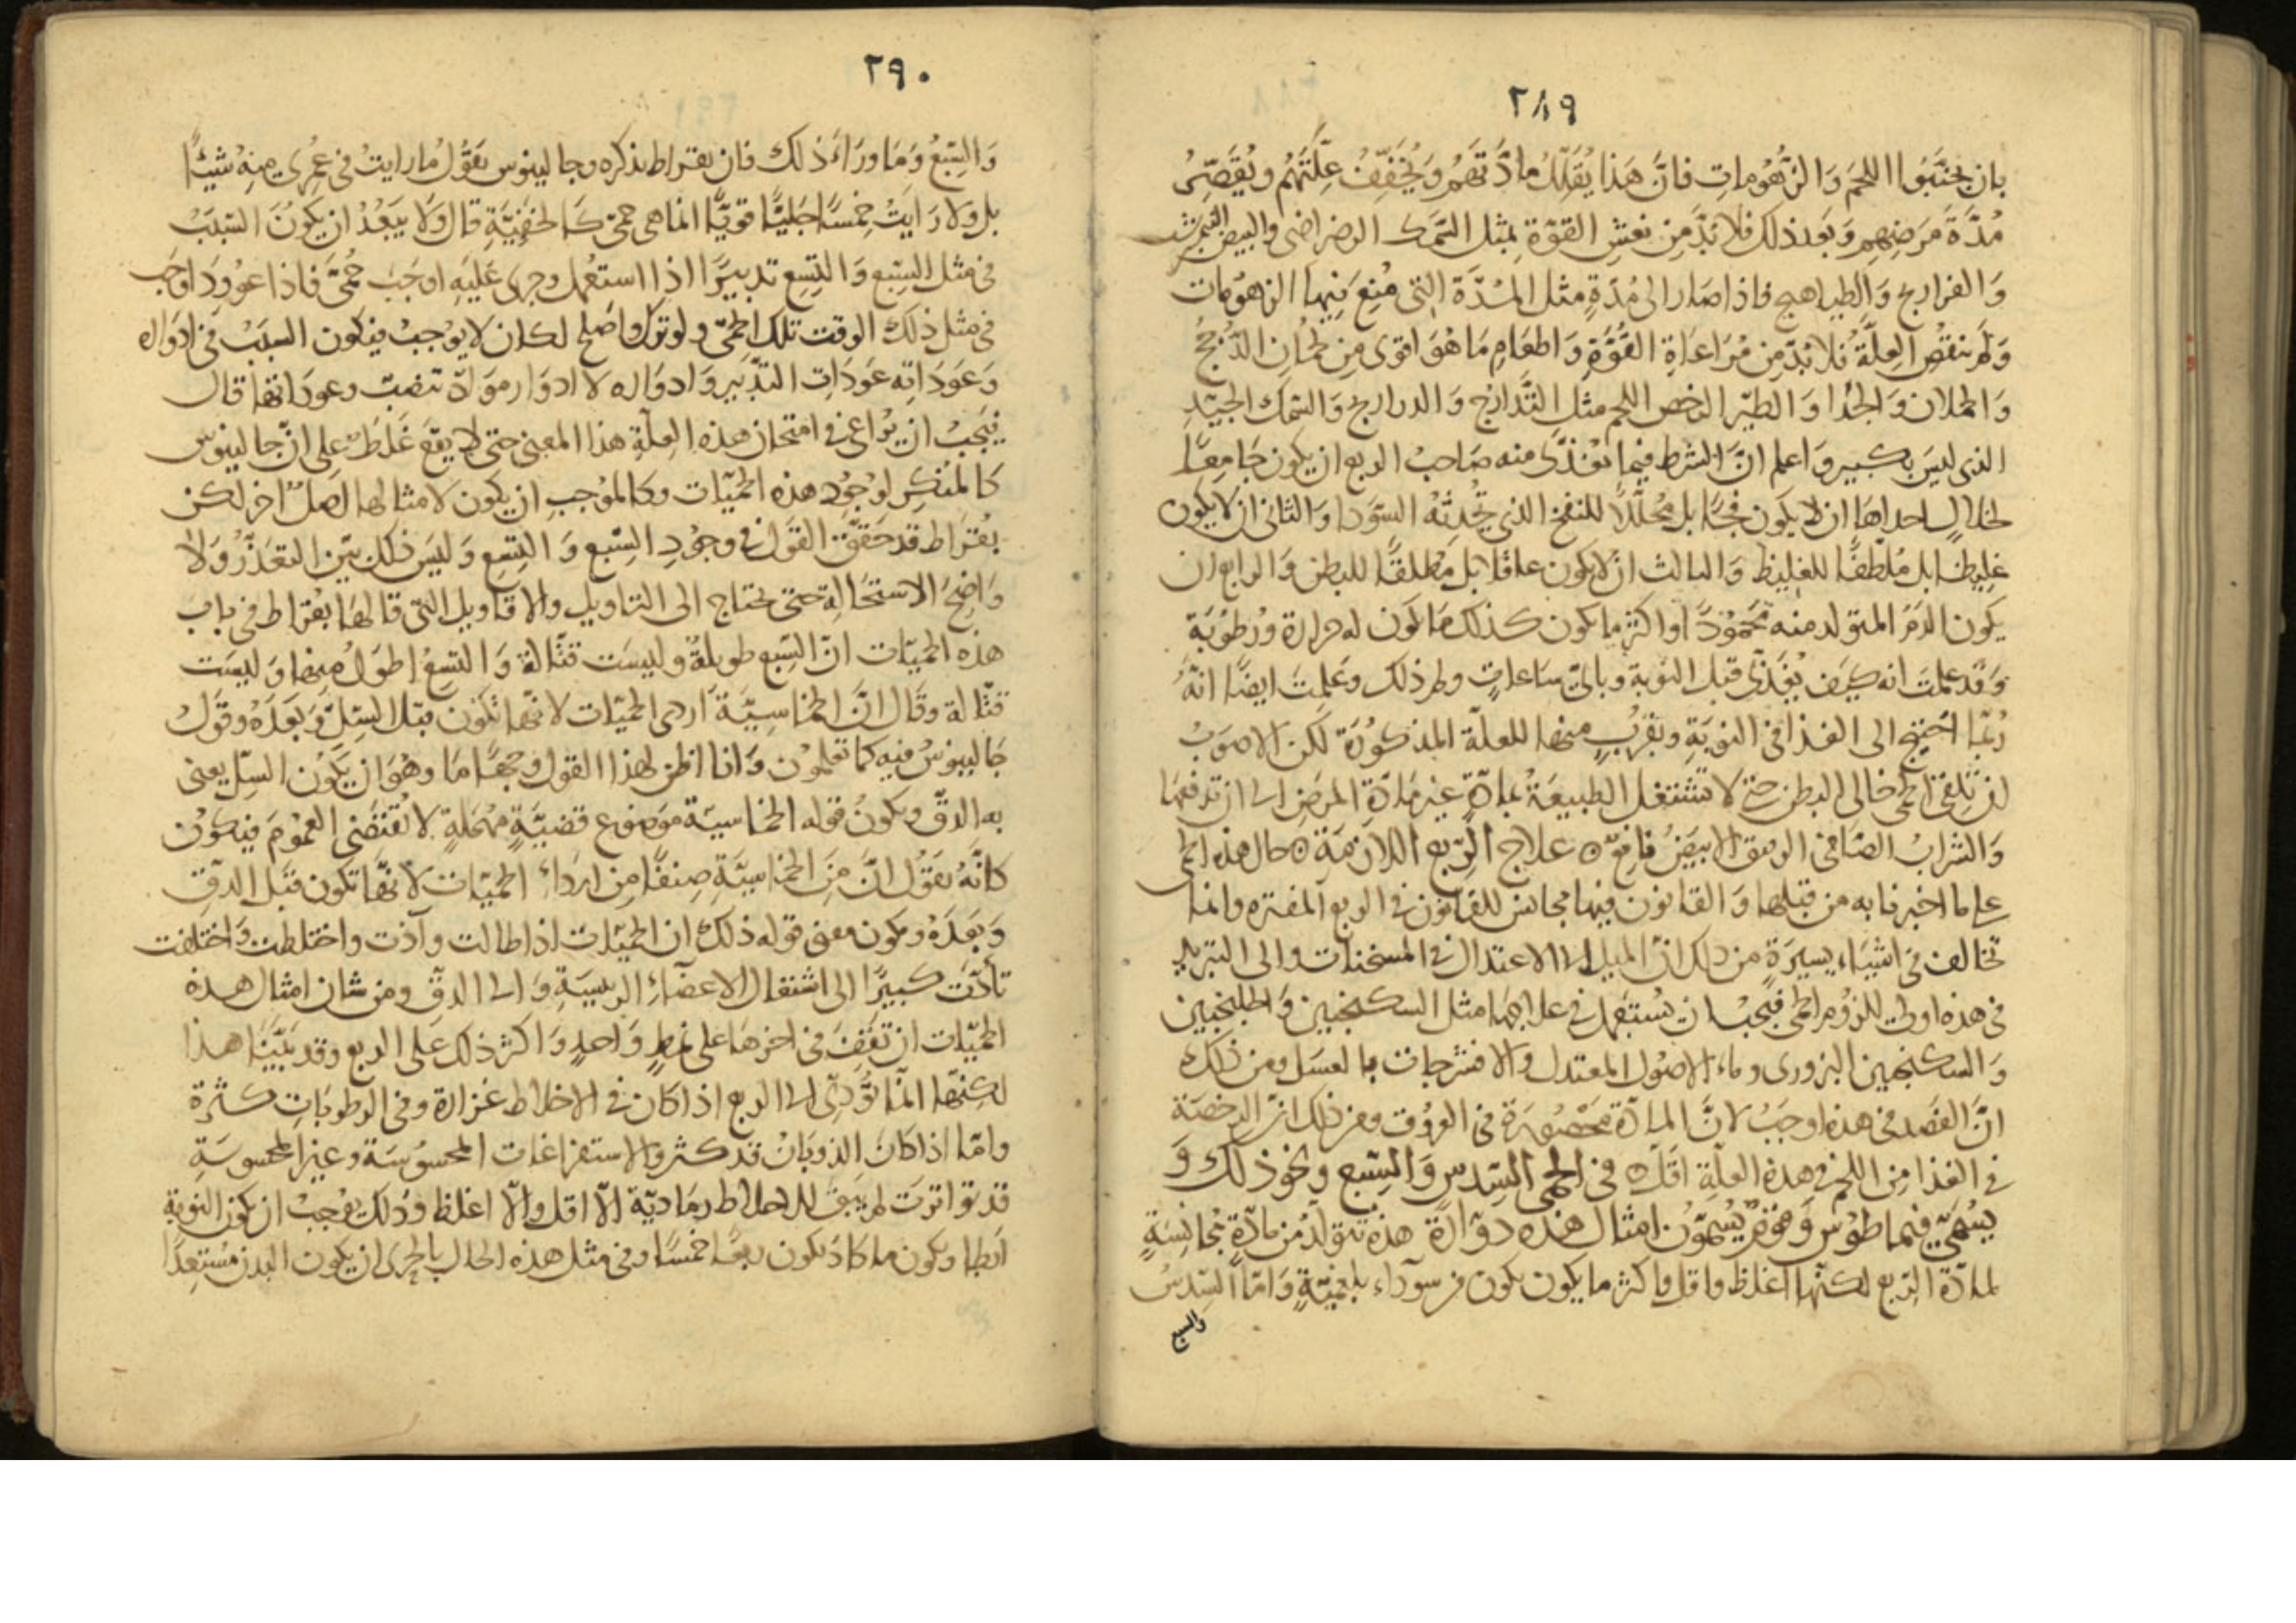 ٢٨٩
بان يجتنبوا اللحم والزهومات فان هذا يقلل مادتهم ويخفف علتهم ويقصر
مدة مرضهم وبعد ذلك فلا بد من نعش القوة بمثل السمك الرضراضي والبيض النيمرشت
والفراريج والطياهيج فاذا صار الى مدة مثل المدة التي منع فيها الزهومات
ولم تنقص العلة فلا بد من مراعاة القوة واطعام ما هو اقوى من لحمان الدجج
والحملان والجدا والطير الرخص اللحم مثل التدارج والدراريج والسمك الجيد
الذي ليس بكبير واعلم ان الشرط فيما يغذى منه صاحب الربع ان يكون جامعا
لخلال احداها ان لا يكون فجا بل محللا للنفخ الذي تحدثه السودا والثاني ان لا يكون
غليظا بل ملطفا للغليظ والثالث ان لا يكون عاقلا بل مطلقا للبطن والرابع ان
يكون الدم المتولد منه محمودا واكثر ما يكون كذلك ما يكون له حرارة ورطوبة
وقد علمت انه كيف يغذى قبل النوبة وباي ساعات ولم ذلك وعلمت ايضا انه
ربما احتيج الى الغذا في النوبة وبقرب منها للعلة المذكورة لكن الاصوب
ان تلقى الحمى خالي البطن حتى لا تشتغل الطبيعة بمادة غير مادة المرض الى ان تدفعها
والشراب الصافي الرقيق الابيض نافع ٥ علاج الربع اللازمة ٥ حال هذه الحمى
على ما اخبرنا به من قبلها والقانون فيها مجانس للقانون في الربع المفترة وانما
تخالف في اشياء يسيرة من ذلك ان الميل الى الاعتدال في المسخنات والى التبريد
في هذه اولى للزوم الحمى فيجب ان يستعمل في علاجها مثل السكنجبين والجلنجبين
والسكنجبين البزوري وماء الاصول المعتدل والافشرجات بالعسل ومن ذلك
ان الفصد في هذه اوجب لان المادة محصورة في العروق ومن ذلك ان الرخصة
في الغذا من اللحم في هذه العلة اقل ٥ في الحمى السدس والسبع ونحو ذلك و
يسمى فيماطوس وقوم يسمون امثال هذه دوارة هذه تتولد من مادة مجانسة
لمادة الربع لكنها اغلظ واقل واكثر ما يكون يكون من سوداء بلغمية واما السدس
والسبع
٢٩٠
والسبع وما وراء ذلك فان بقراط يذكره وجالينوس يقول ما رايت في عمري منه شيئا
بل ولا رايت خمسا جليا قويا انما هي حمى كالخفية قال ولا يبعد ان يكون السبب
في مثل السبع والتسع تدبيرا اذا استعمل وجرى عليه اوجب حمى فاذا عوود اوجب
في مثل ذلك الوقت تلك الحمى ولو ترك واصلح لكان لا يوجب فيكون السبب في ادواره
وعوداته عودات التدبير وادواره لا ادوار مواد تنصب وعوداتها قال
فيجب ان يراعى في امتحان هذه العلة هذا المعنى حتى لا يقع غلط على ان جالينوس
كالمنكر لوجود هذه الحميات وكالموجب ان يكون لامثالها اصل اخر لكن
بقراط قد حقق القول في وجود السبع والتسع وليس ذلك بين التعذر ولا
واضح الاستحالة حتى يحتاج الى التاويل والاقاويل التي قالها بقراط في باب
هذه الحميات ان السبع طويلة وليست قتالة والتسع اطول منها وليست
قتالة وقال ان الخماسية اردى الحميات لانها تكون قبل السل وبعده وقول
جالينوس فيه كما تعلمون وانا اظن لهذا القول وجها ما وهو ان يكون السل يعني
به الدق ويكون قوله الخماسية موضوع قضية مهملة لا يقتضي العموم فيكون
كانه يقول ان من الخماسية صنفا من ارداء الحميات لانها تكون قبل الدق
وبعده ويكون معنى قوله ذلك ان الحميات اذا طالت وآذت واختلطت واختلفت
تأدت كبيرا الى اشتعال الاعضاء الرييسية والى الدق ومن شان امثال هذه
الحميات ان تقف في اخرها على نمط واحد واكثر ذلك على الربع وقد بينا هذا
لكنها انما تؤدي الى الربع اذا كان في الاخلاط غزارة وفي الرطوبات كثرة
واما اذا كان الذوبان قد كثر والاستفراغات المحسوسة وغير المحسوسة
قد تواترت لم يبق للاخلاط رمادية الا اقل والا اغلظ وذلك يوجب ان تكون النوبة
ابطا ويكون ما كاد يكون ربعا خمسا وفي مثل هذه الحال بالحرى ان يكون البدن مستعدا